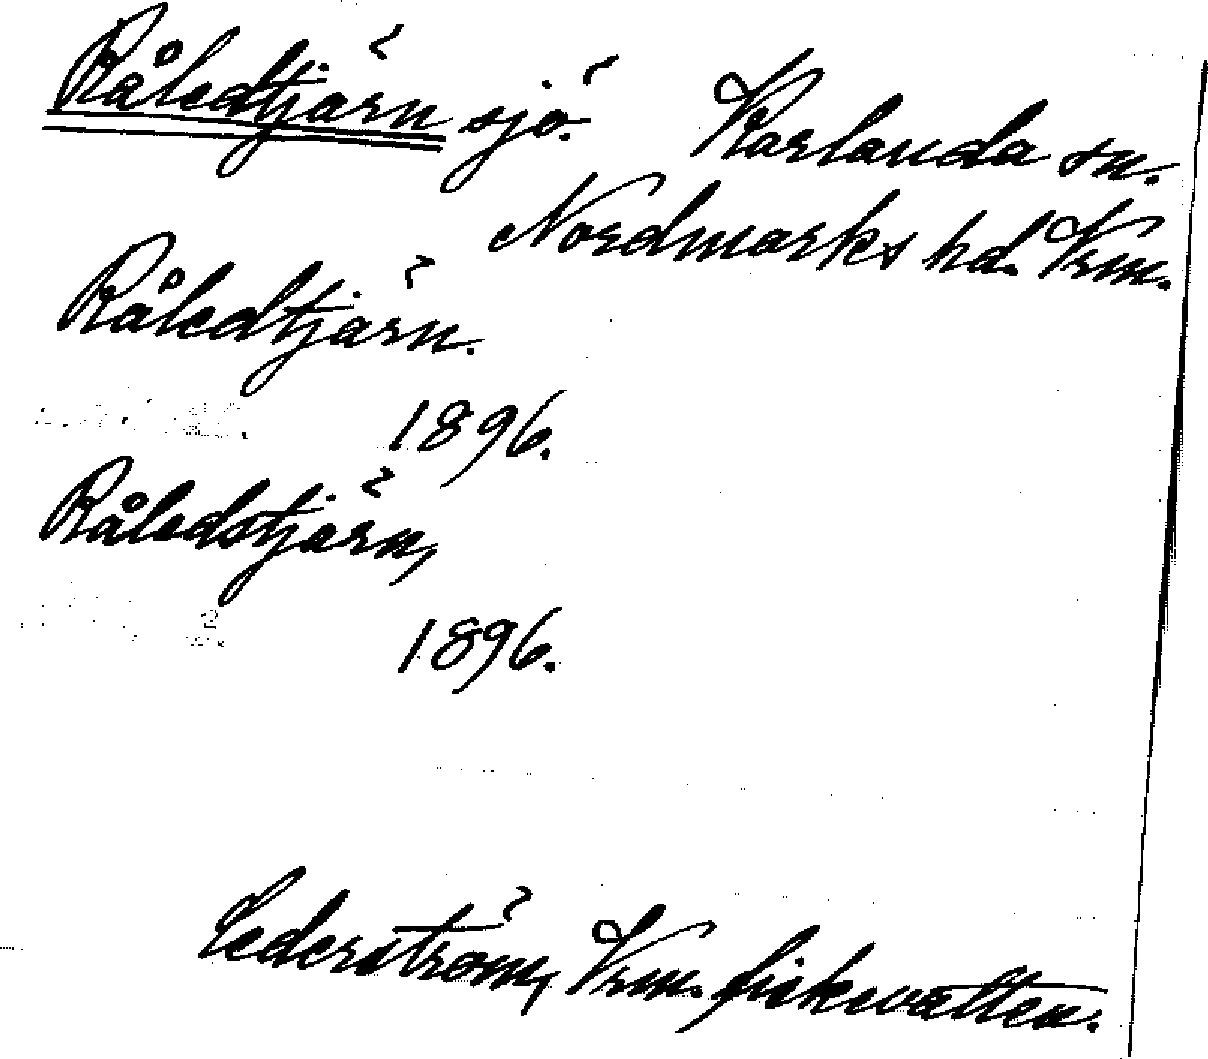 Råledtjärn sjö. Karlanda sn.
Nordmarks hd. Vrm.
Råledtjärn.
1896.
Råledstjärn,
1896.
Cederström, Vrm. fiskevatten.